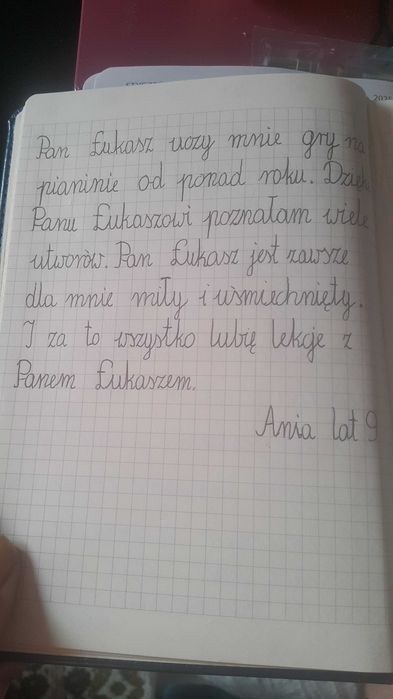 Pan Łukasz uczy mnie gry na
pianinie od ponad roku. Dzięki
Panu Łukaszowi poznałam wiele
utworów. Pan Łukasz jest zawsze
dla mnie miły i uśmiechnięty.
I za to wszystko lubię lekcje z
Panem Łukaszem.
Ania lat 9